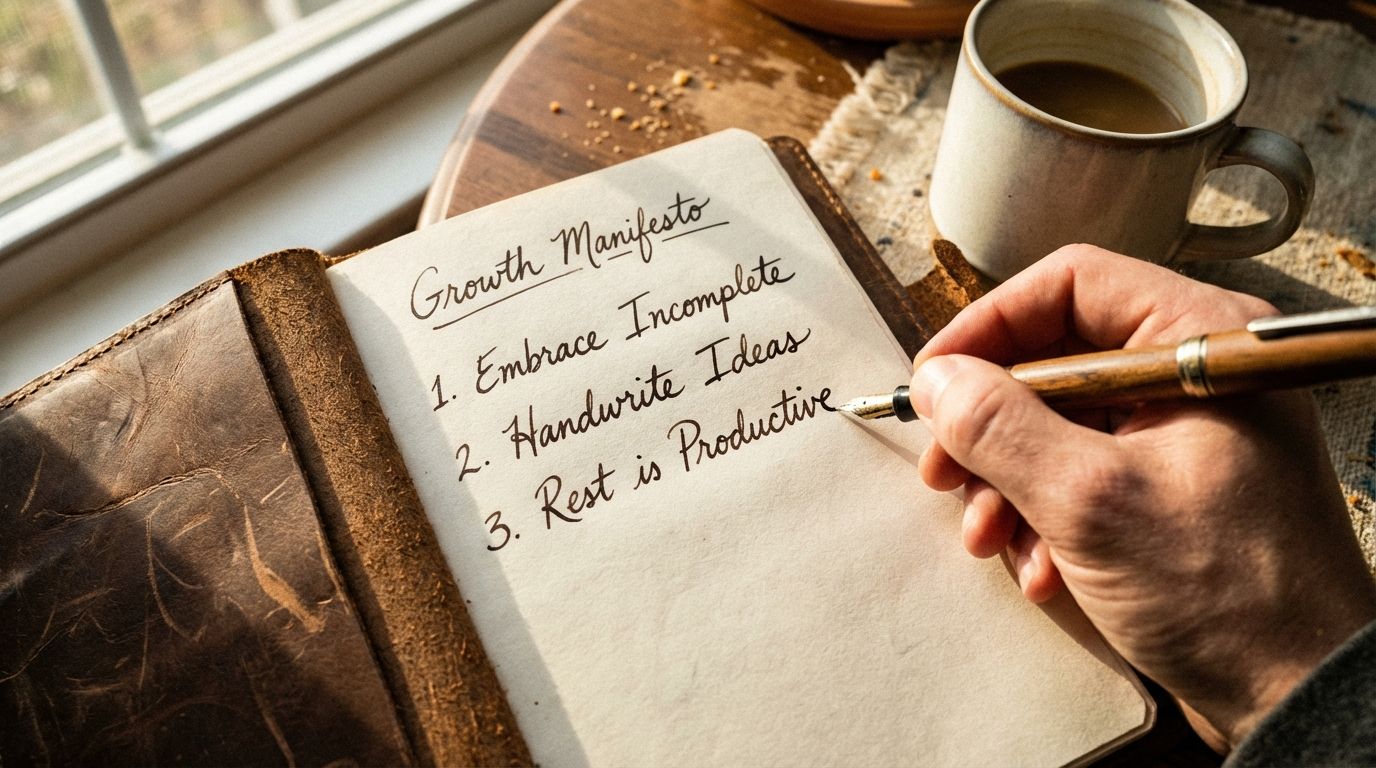 Growth Manifesto
1. Embrace Incomplete
2. Handwrite Ideas
3. Rest is Productive